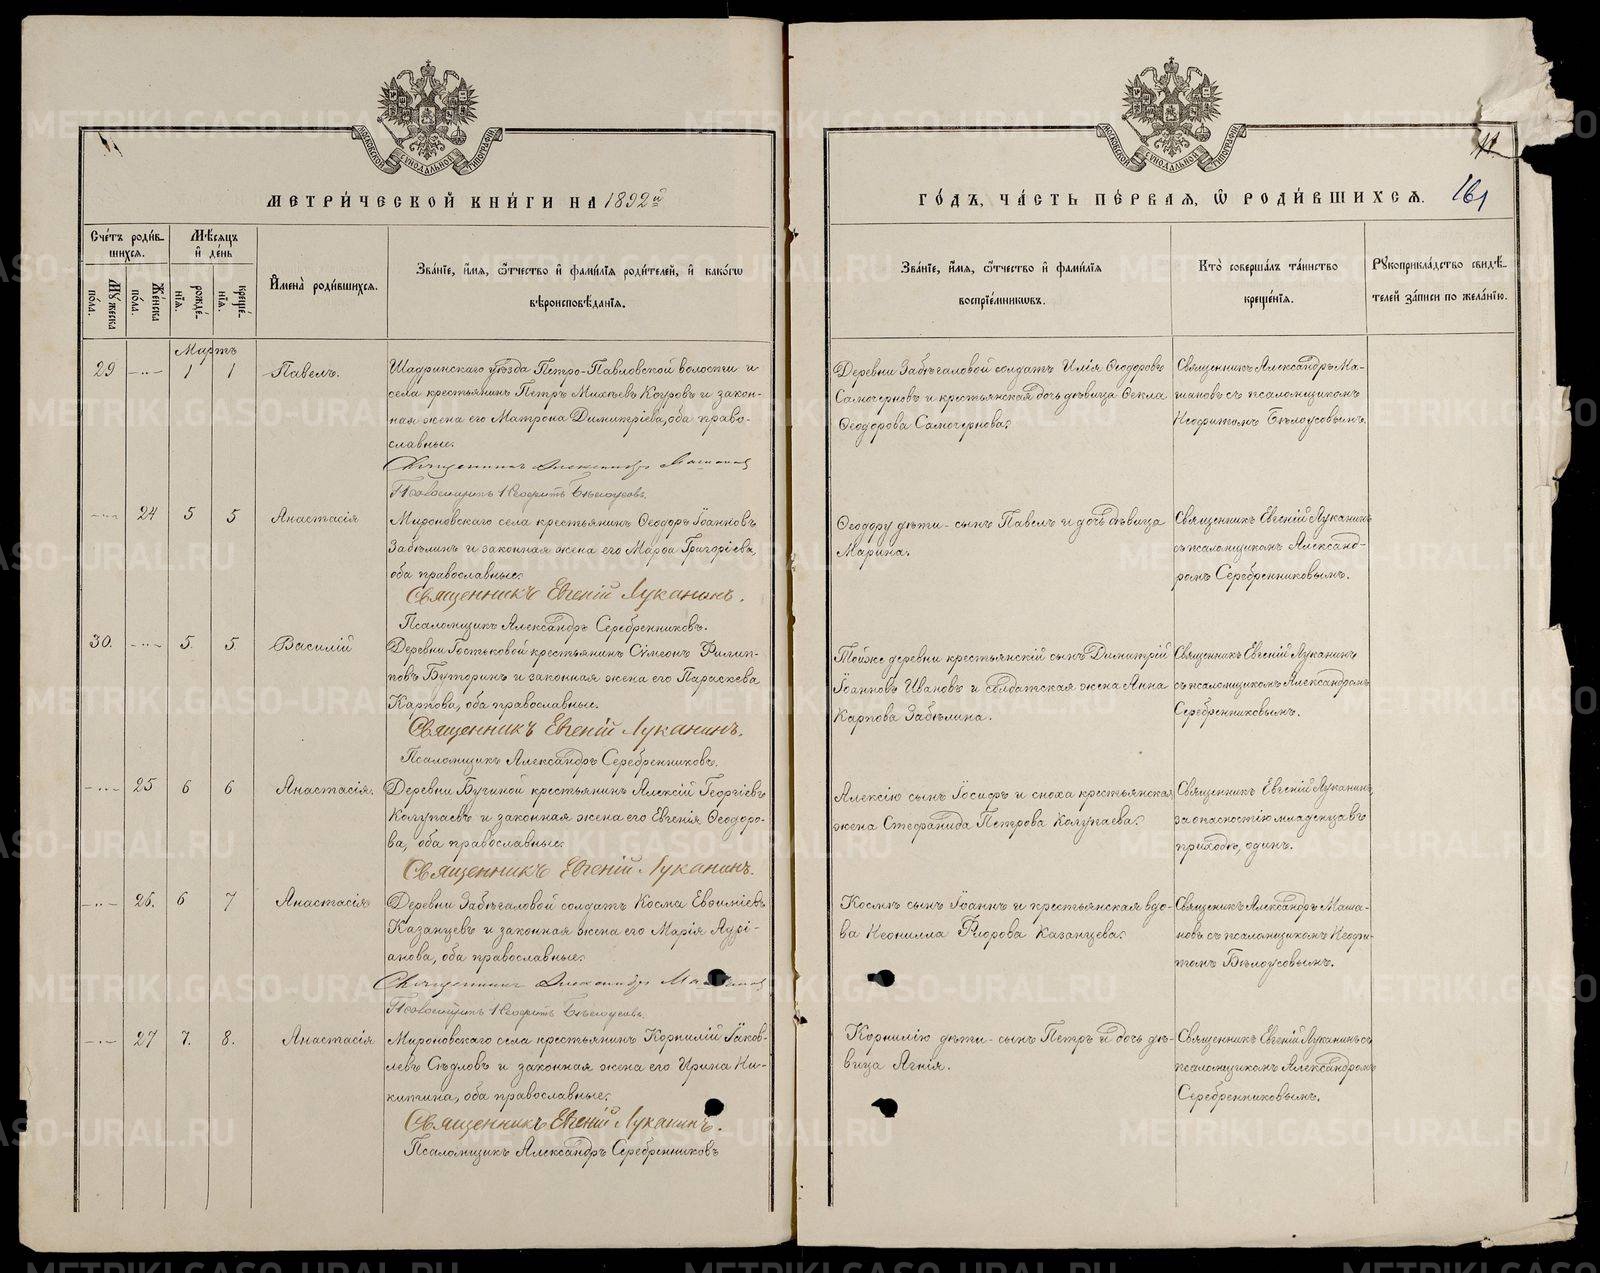 МОСКОВСКОЙ СУНОДАЛЬНОЙ ТИПОГРАФІИ
МОСКОВСКОЙ СУНОДАЛЬНОЙ ТИПОГРАФІИ
МЕТРИ́ЧЕСКОЙ КНИ́ГИ НА 1892й
ГО́ДЪ, ЧА́СТЬ ПЕ́РВАЯ, Ѡ РОДИ́ВШИХСЯ.
161
Сче́тъ роди́в-
шихся.
Мѣ́сяцъ
и҆ де́нь
Му́жеска
по́ла.
Же́нска
по́ла.
рожде́-
нія.
креще́-
нія.
И҆мена̀ роди́вшихся.
Зва́ніе, и҆́мя, ѻ҆́тчество и҆ фами́лія роди́телей, и҆ како́гѡ
вѣроисповѣ́данія.
Зва́ніе, и҆́мя, ѻ҆́тчество и҆ фами́лія
воспріе́мниковъ.
Кто̀ соверша́лъ та́инство
креще́нія.
Рукоприкла́дство свидѣ́-
телей за́писи по жела́нію.
Мартъ
29 -"- 1 1 Павелъ.
Шадринскаго уѣзда Петро-Павловской волости и
села крестьянинъ Петръ Михѣевъ Коуровъ и закон-
ная жена его Матрона Димитріева, оба право-
славные.
Священникъ Александръ Машановъ
Псаломщикъ Неофитъ Бѣлоусовъ.
Деревни Забѣгаловой солдатъ Илія Ѳеодоровъ
Самочерновъ и крестьянская дочь дѣвица Ѳекла
Ѳеодорова Самочернова.
Священникъ Александръ Ма-
шановъ съ псаломщикомъ
Неофитомъ Бѣлоусовымъ.
-"- 24 5 5 Анастасія
Мироновскаго села крестьянинъ Ѳеодоръ Іоанновъ
Забѣлинъ и законная жена его Марѳа Григоріева,
оба православные.
Священникъ Евгеній Луканинъ.
Псаломщикъ Александръ Серебренниковъ.
Ѳеодору дѣти - сынъ Павелъ и дочь дѣвица
Марина.
Священникъ Евгеній Луканинъ
съ псаломщикомъ Александ-
ромъ Серебренниковымъ.
30. -"- 5. 5 Василій
Деревни Гостьковой крестьянинъ Сѵмеонъ Филип-
повъ Буторинъ и законная жена его Параскева
Карпова, оба православные.
Священникъ Евгеній Луканинъ.
Псаломщикъ Александръ Серебренниковъ.
Тойже деревни крестьянскій сынъ Димитрій
Іоанновъ Ивановъ и солдатская жена Анна
Карпова Забѣлина.
Священникъ Евгеній Луканинъ
съ псаломщикомъ Александромъ
Серебренниковымъ.
-"- 25 6 6 Анастасія.
Деревни Бучиной крестьянинъ Алексій Георгіевъ
Колупаевъ и законная жена его Евгенія Ѳеодоро-
ва, оба православные.
Священникъ Евгеній Луканинъ.
Алексію сынъ Іосифъ и сноха крестьянская
жена Стефанида Петрова Колупаева.
Священникъ Евгеній Луканинъ,
за опасностію младенца въ
приходѣ, одинъ.
-"- 26. 6 7 Анастасія
Деревни Забѣгаловой солдатъ Косма Евѳиміевъ
Казанцевъ и законная жена его Марія Адрі-
анова, оба православные.
Священникъ Александръ Машановъ
Псаломщикъ Неофитъ Бѣлоусовъ.
Космѣ сынъ Іоаннъ и крестьянская вдо-
ва Неонилла Флорова Казанцева.
Священникъ Александръ Маша-
новъ съ псаломщикомъ Неофи-
томъ Бѣлоусовымъ.
-"- 27 7. 8. Анастасія
Мироновскаго села крестьянинъ Корнилій Іаков-
левъ Сѣдловъ и законная жена его Ирина Ни-
китина, оба православные.
Священникъ Евгеній Луканинъ.
Псаломщикъ Александръ Серебренниковъ
Корнилію дѣти - сынъ Петръ и дочь дѣ-
вица Агнія.
Священникъ Евгеній Луканинъ съ
псаломщикомъ Александромъ
Серебренниковымъ.
METRIKI.GASO-URAL.RU